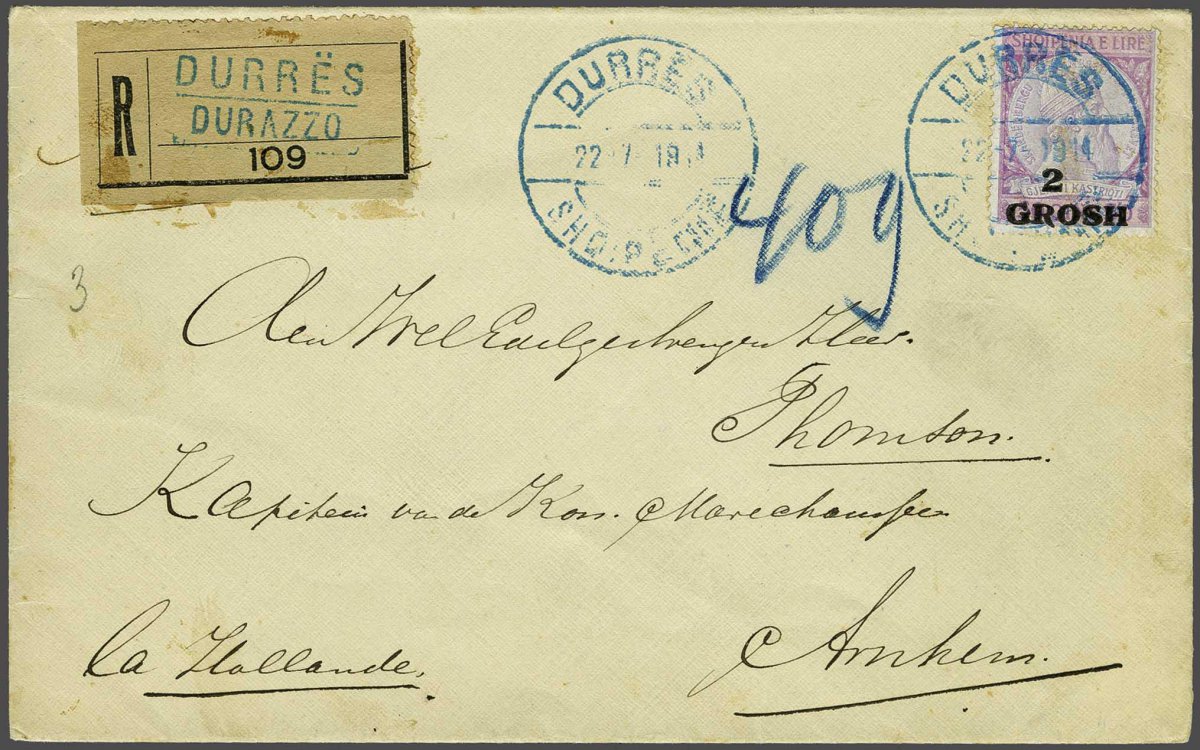 R
DURRËS
DURAZZO
109
DURRËS
22 7 1914
SHQIPENIË
409
DURRËS
22 1914
SHQIPENIA E LIRE
SKANDERBEGU
GJERGJ KASTRIOTI
2
GROSH
3
Aen Wel Edelgestrengen Heer.
Thomson.
Kapitein van de Kon. Marechaussee
Arnhem.
La Hollande.